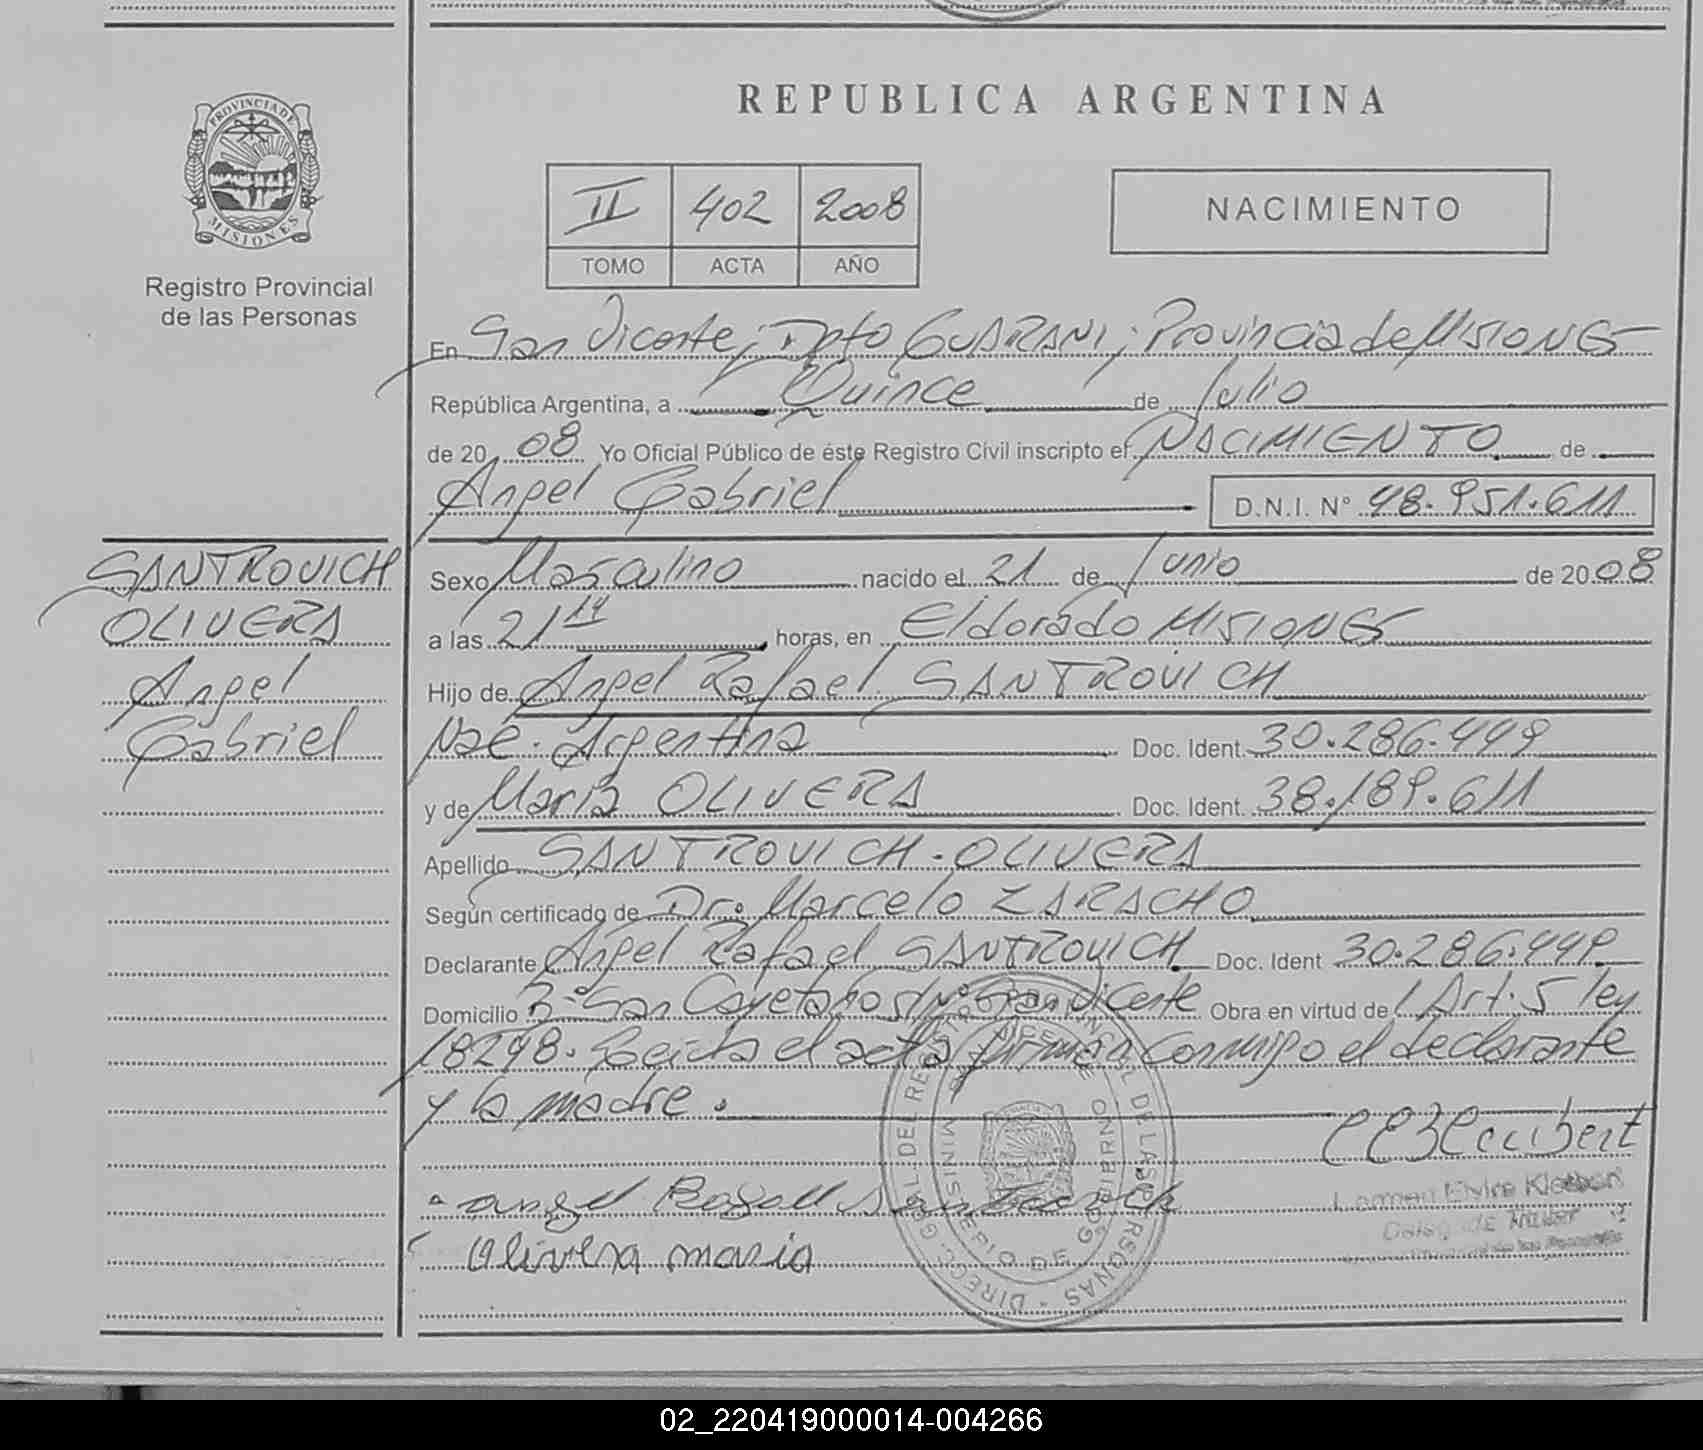 REPUBLICA ARGENTINA
PROVINCIA DE
MISIONES
Registro Provincial
de las Personas
II 402 2008
TOMO ACTA AÑO
NACIMIENTO
En San Vicente; Dpto GUARANI; Provincia de MISIONES
República Argentina, a Quince de Julio
de 20 08 Yo Oficial Público de éste Registro Civil inscripto el NACIMIENTO de
Angel Gabriel D.N.I. Nº 48.951.611
SANTROVICH
OLIVERA
Angel
Gabriel
Sexo Masculino nacido el 21 de Junio de 20 08
a las 21 horas, en Eldorado MISIONES
Hijo de Angel Rafael SANTROVICH
Nac. Argentina Doc. Ident. 30.286.499
y de Maria OLIVERA Doc. Ident. 38.189.611
Apellido SANTROVICH - OLIVERA
Según certificado de Dr. Marcelo ZARACHO
Declarante Angel Rafael SANTROVICH Doc. Ident 30.286.499
Domicilio Bº San Cayetano s/Nº San Vicente Obra en virtud de Art. 5 ley
18248. Leida el acta firman conmigo el declarante
y la madre.
angel Rafael
Olivera maria
DIRECC. GRAL. DEL REGISTRO PROVINCIAL DE LAS PERSONAS
MINISTERIO DE GOBIERNO
02_220419000014-004266